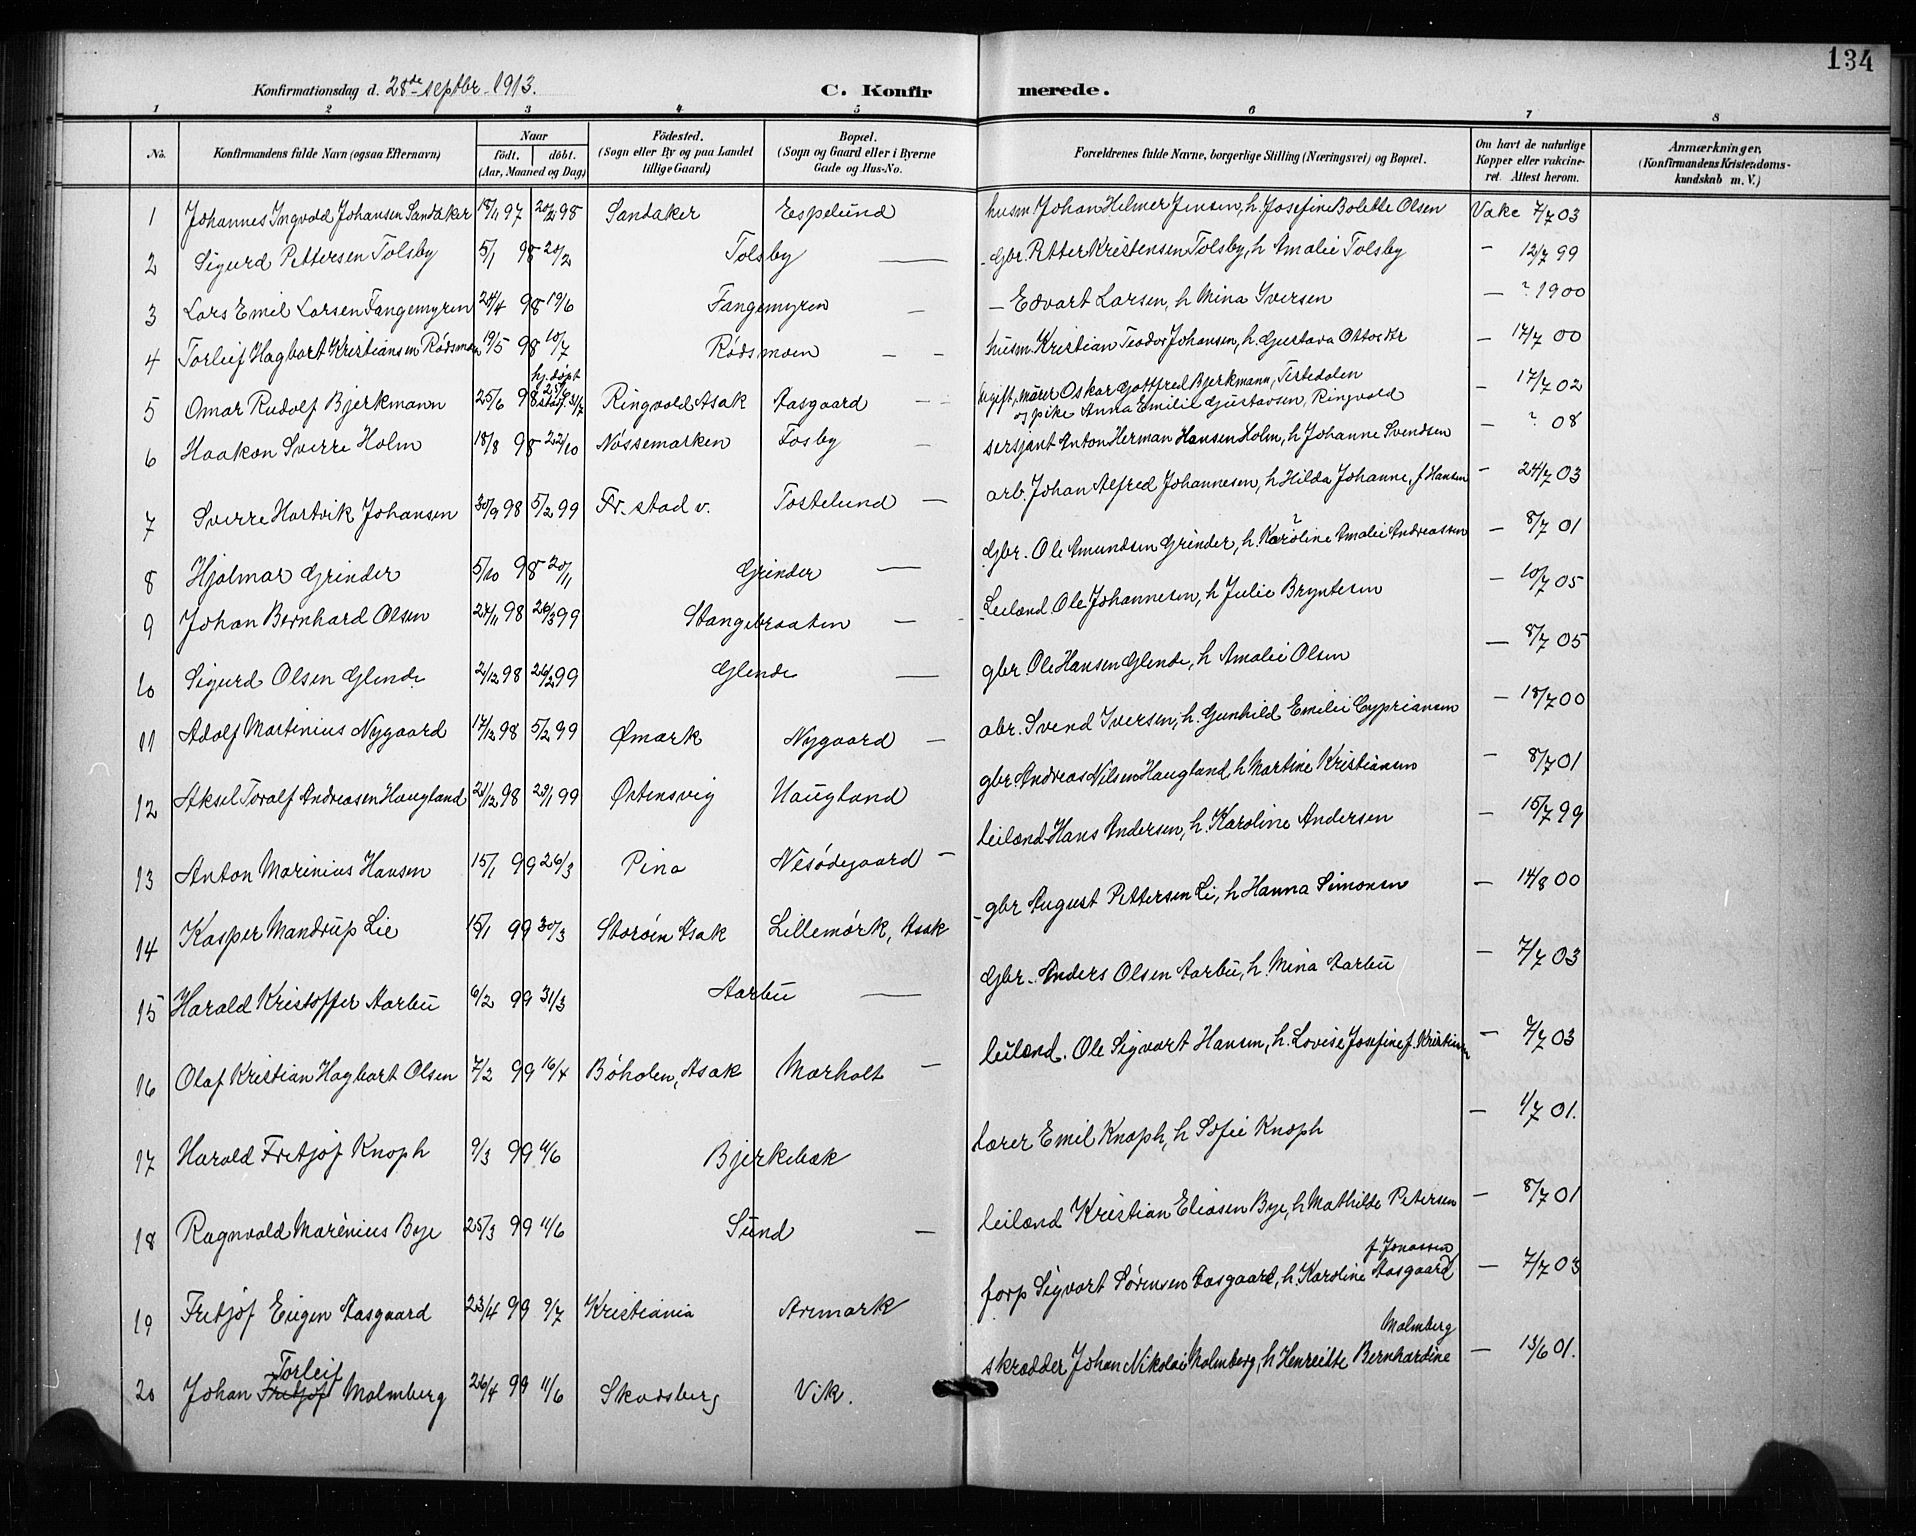 134
Konfirmationsdag d. 28de septbr. 1913. C. Konfirmerede.
1 2 3 4 5 6 7 8
No. Konfirmandens fulde Navn (ogsaa Efternavn) Naar født. døbt. (Aar, Maaned og Dag) Fødested. (Sogn eller By og paa Landet tillige Gaard) Bopæl. (Sogn og Gaard eller i Byerne Gade og Hus-No. Forældrenes fulde Navne, borgerlige Stilling (Næringsvei) og Bopæl. Om havt de naturlige Kopper eller vakcineret. Attest herom. Anmærkninger, (Konfirmandens Kristendomskundskab m. V.)
1 Johannes Ingvold Johansen Sandaker 18/11 97 20/2 98 Sandaker Espelund husm. Johan Helmer Jensen, h. Josefine Bolette Olsen Vake 7/7 03
2 Sigurd Pettersen Tolsby 5/1 98 20/2 Tolsby — gbr. Petter Kristensen Tolsby, h Amalie Tolsby — 12/7 99
3 Lars Emil Larsen Fangemyren 24/4 98 19/6 Fangemyren — — Edvart Larsen, h Mina Iversen — ? 1900
4 Torleif Hagbart Kristiansen Rødsmoen 19/5 98 10/7 Rødsmoen — — husm. Kristian Teodor Johansen, h. Gustava Ottosdtr — 17/7 00
5 Omar Rudolf Bjerkmann 25/6 98 hj. døpt 25/6 stadf. 31/7 Ringvold Asak Aasgaard — — Ugift, murer Oskar Gottfred Bjerkmann, Tistedalen og pike Anna Emilie Gustavsen, Ringvold — 17/7 02
6 Haakon Sverre Holm 18/8 98 22/10 Nössemarken Fosby — sersjant Anton Herman Hansen Holm, h Johanne Svendsen — ? 08
7 Sverre Hartvik Johansen 30/9 98 5/2 99 Fr. stad v. Tostelund — arb. Johan Alfred Johannesen, h Hilda Johanne, f Hansen — 24/7 03
8 Hjalmar Grinder 5/10 98 20/11 Grinder — gbr. Ole Amundsen Grinder, h. Karoline Amalie Andreassen — 8/7 01
9 Johan Bernhard Olsen 27/11 98 26/3 99 Stangebraaten — Leilænd Ole Johannesen, h Julie Bryntesen — 10/7 05
10 Sigurd Olsen Glende 2/12 98 26/2 99 Glende — gbr. Ole Hansen Glende, h Amalie Olsen — 8/7 05
11 Adolf Martinius Nygaard 17/12 98 5/2 99 Ømark Nygaard — abr. Svend Iversen, h. Gunhild Emilie Cypriansen — 18/7 00
12 Aksel Toralf Andreasen Haugland 21/12 98 29/1 99 Østensvig Haugland gbr. Andreas Nilsen Haugland, h Martine Kristiansen — 8/7 01
13 Anton Marinius Hansen 15/1 99 26/3 Pina Nesødegaard — leilænd Hans Andersen, h. Karoline Andersen — 15/7 99
14 Kasper Mandrup Lie 15/1 99 30/3 Storøen Asak Lillemørk, Asak gbr August Pettersen Li, h Hanna Simonsen — 14/8 00
15 Harald Kristoffer Aarbu 6/2 99 31/3 Aarbu — gbr. Anders Olsen Aarbu, h. Mina Aarbu — 7/7 03
16 Olaf Kristian Hagbart Olsen 7/2 99 16/4 Böholen, Asak Marholt — leilænd. Ole Sigvart Hansen, h. Lovise Josefine f. Kristiansen — 7/7 03
17 Harald Fritjof Knoph 9/3 99 4/6 Bjerkebæk lærer Emil Knoph, h Sofie Knoph — 1/7 01.
18 Ragnvald Marenius Bye 25/3 99 11/6 Sund — leilænd Kristian Eliasen Bye, h Mathilde Petersen — 8/7 01
19 Fritjof Eugen Aasgaard 23/4 99 9/7 Kristiania Aremark forp Sigvart Sørensen Aasgaard, h Karoline Aasgaard f. Jonassen — 7/7 03
20 Johan Fritjof Torleif Malmberg 26/4 99 11/6 Skodsberg Vik. skrædder Johan Nikolai Malmberg, h Henreitte Bernhardine Malmberg — 13/6 01.